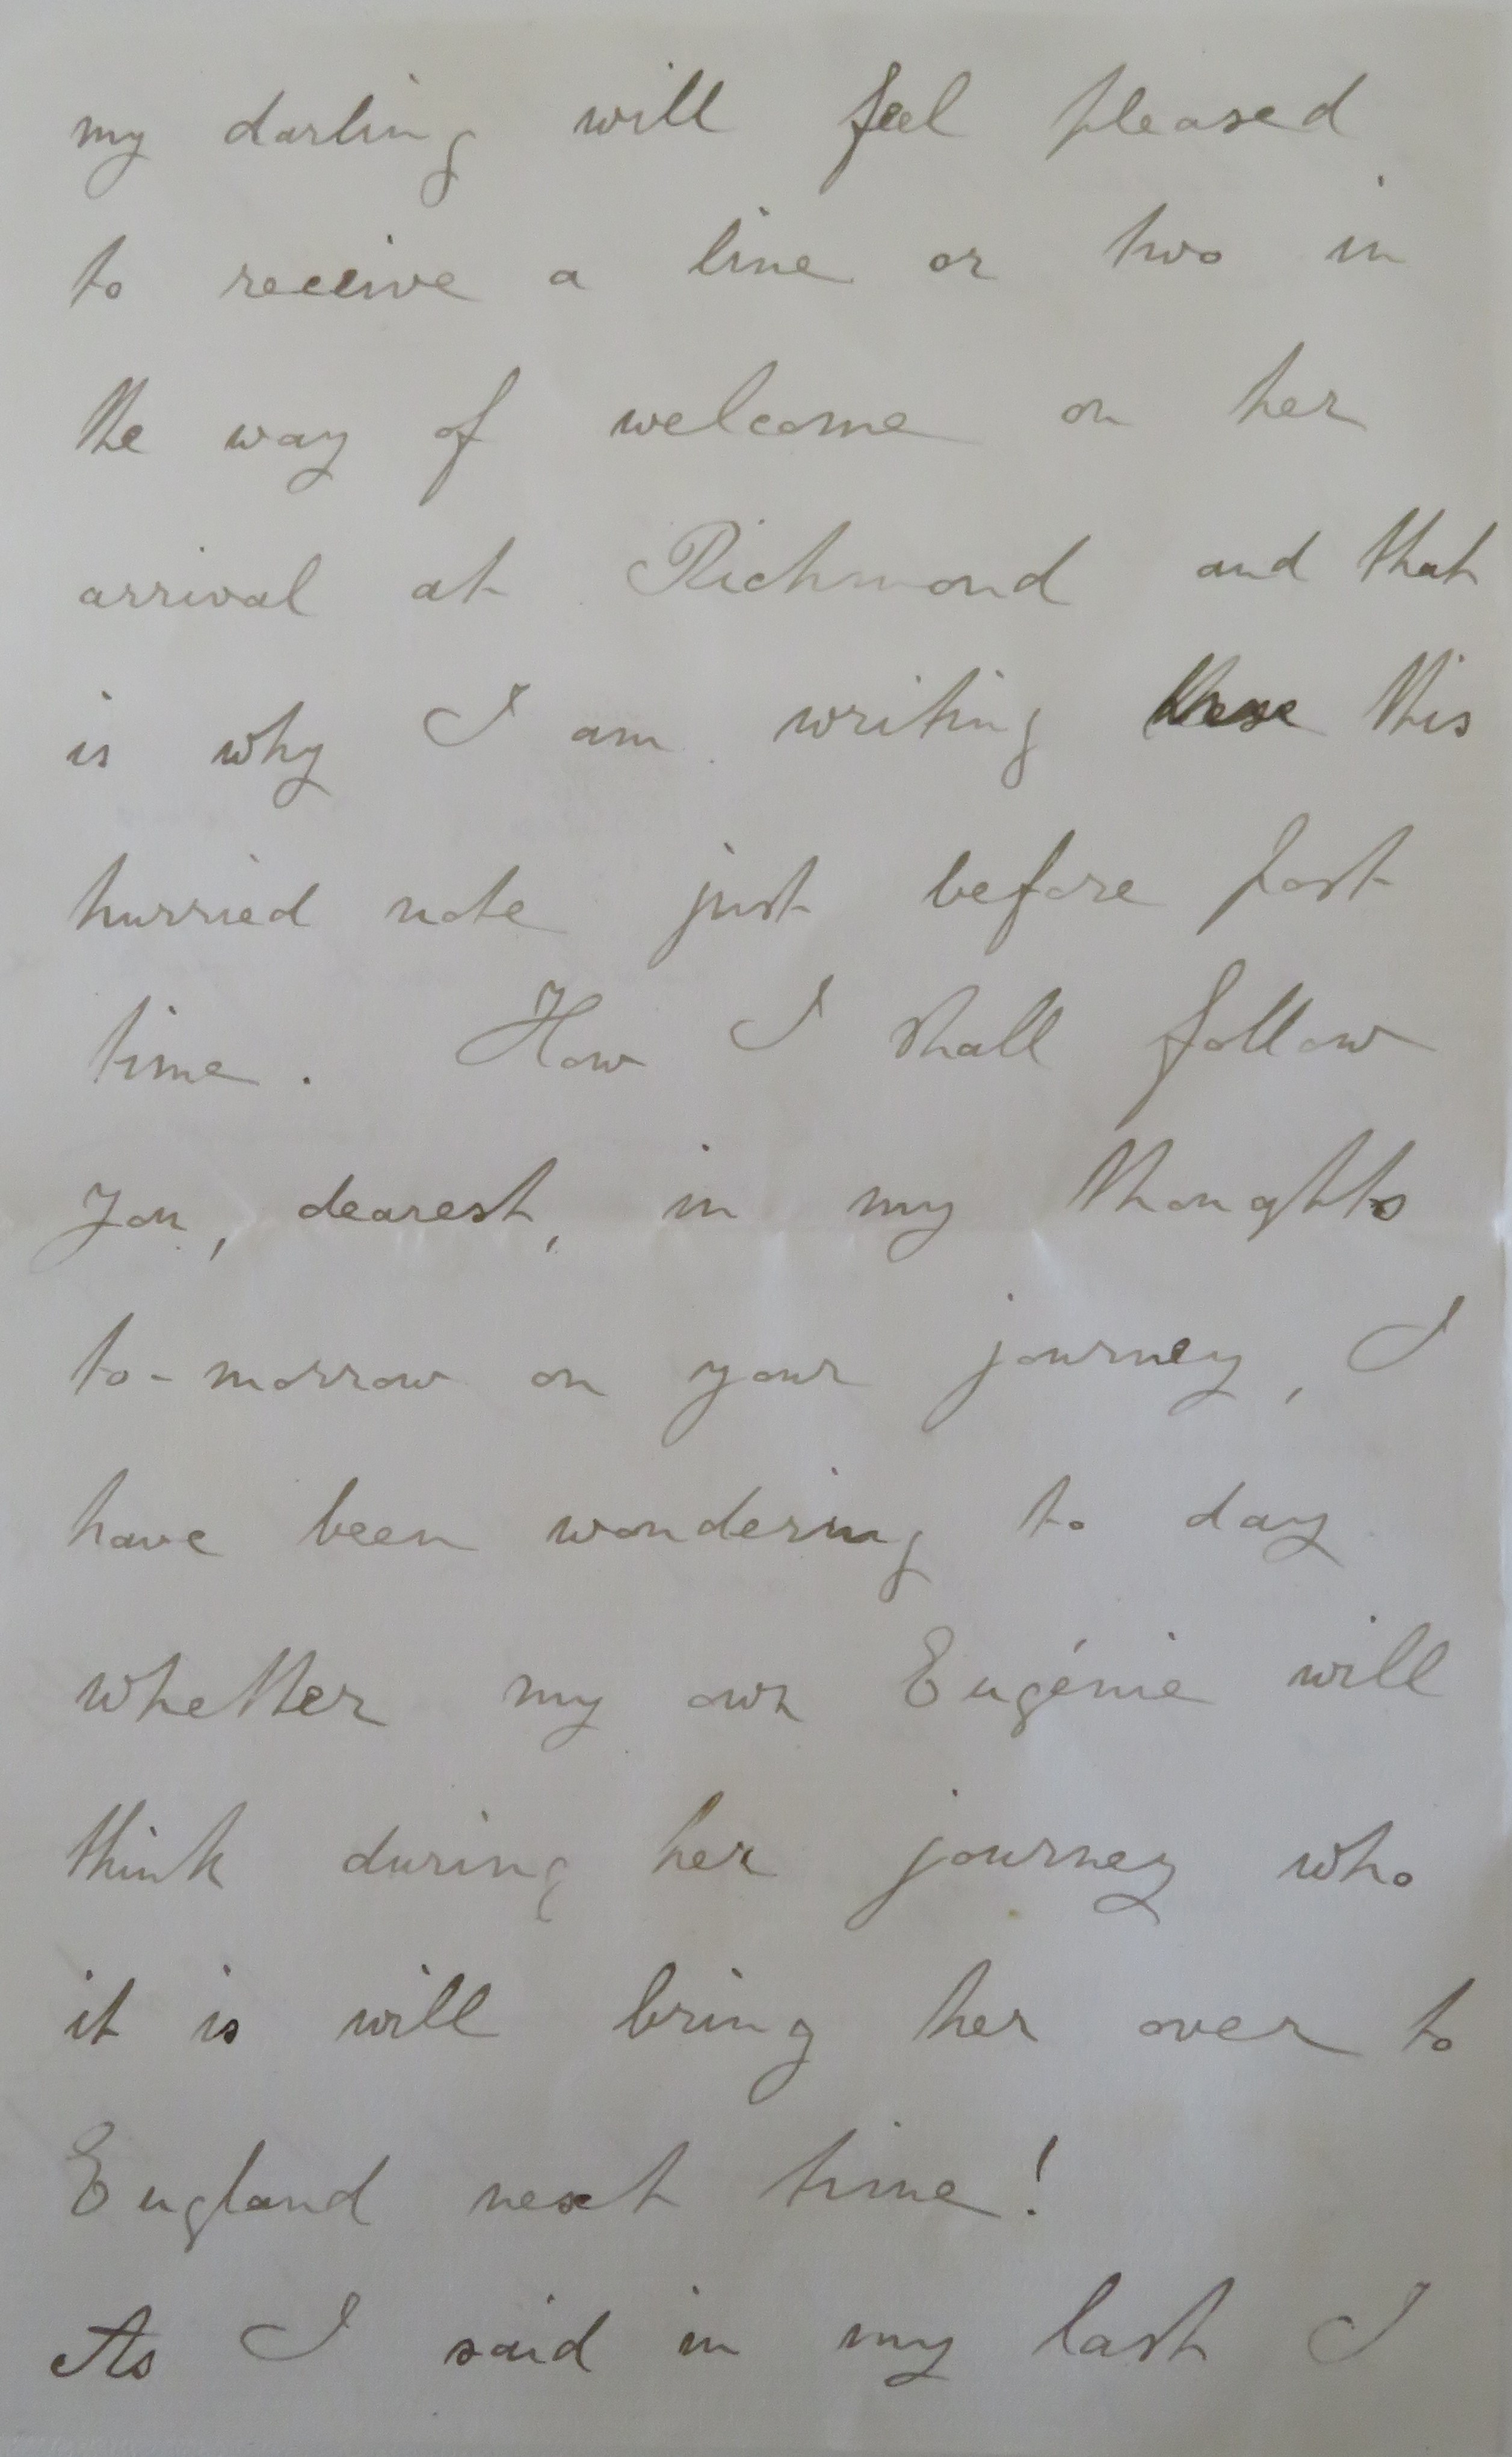 my darling will feel pleased
to receive a line or two in
the way of welcome on her
arrival at Richmond and that
is why I am writing these this
hurried note just before post
time. How I shall follow
you, dearest, in my thoughts
to-morrow on your journey, I
have been wondering to day
whether my own Eugénie will
think during her journey who
it is will bring her over to
England next time!
As I said in my last I